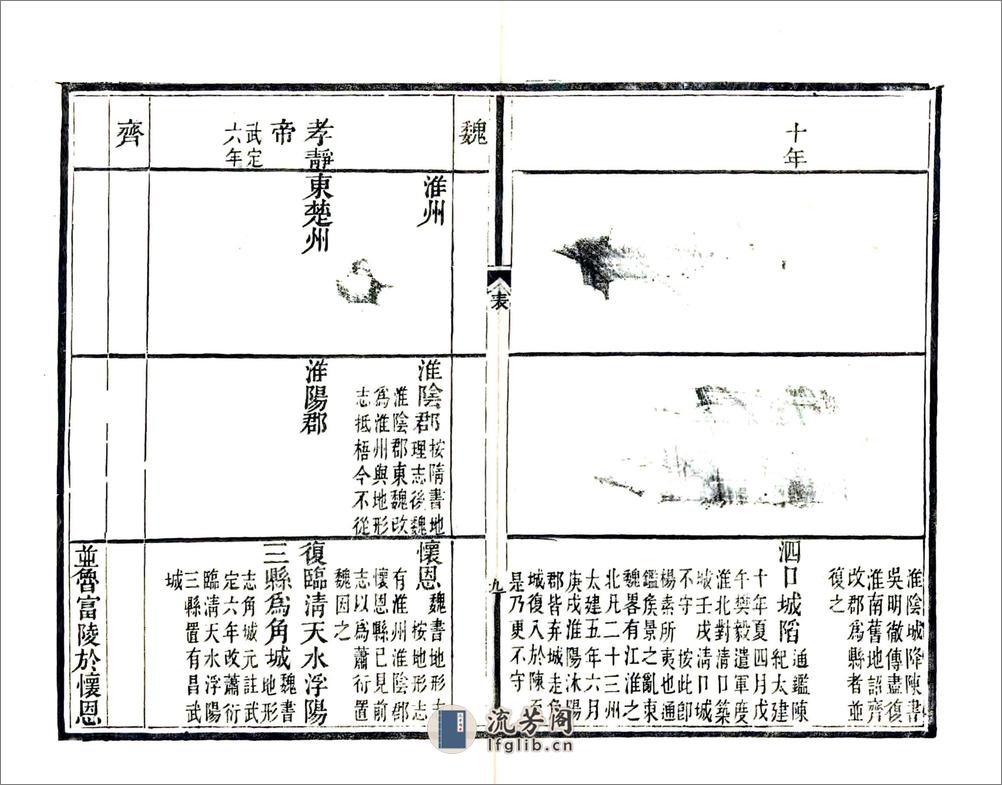 淮陰城降陳書
吳明徹傳盡復
淮南舊地詔齊
改郡爲縣者並
復之
十年
泗口城陷
通鑑陳
紀太建
十年夏四月戊
午樊毅遣軍度
淮北對清口築
城壬戌清口城
不守按此卽
楊素所夷也通
鑑侯景之亂東
魏畧有江淮之
北凡二十三州
太建五年六月
庚戌淮陽沭陽
郡皆弃城走
城復入於陳至
是乃更不守
表
九
魏
淮州
淮陰郡
按隋書地
理志後魏
淮陰郡東魏改
爲淮州與地形
志抵梧今不從
懷恩
魏書地形志
按地形志
有淮州淮陰郡
懷恩縣已見前
志以爲蕭衍置
魏因之
孝靜
帝
武定
六年
東楚州
淮陽郡
復臨清天水浮陽
三縣爲角城
魏書
地形
志角城元註武
定六年改蕭衍
臨清天水浮陽
三縣置有昌武
城
齊
並魯富陵於懷恩
流芳阁
lfglib.cn